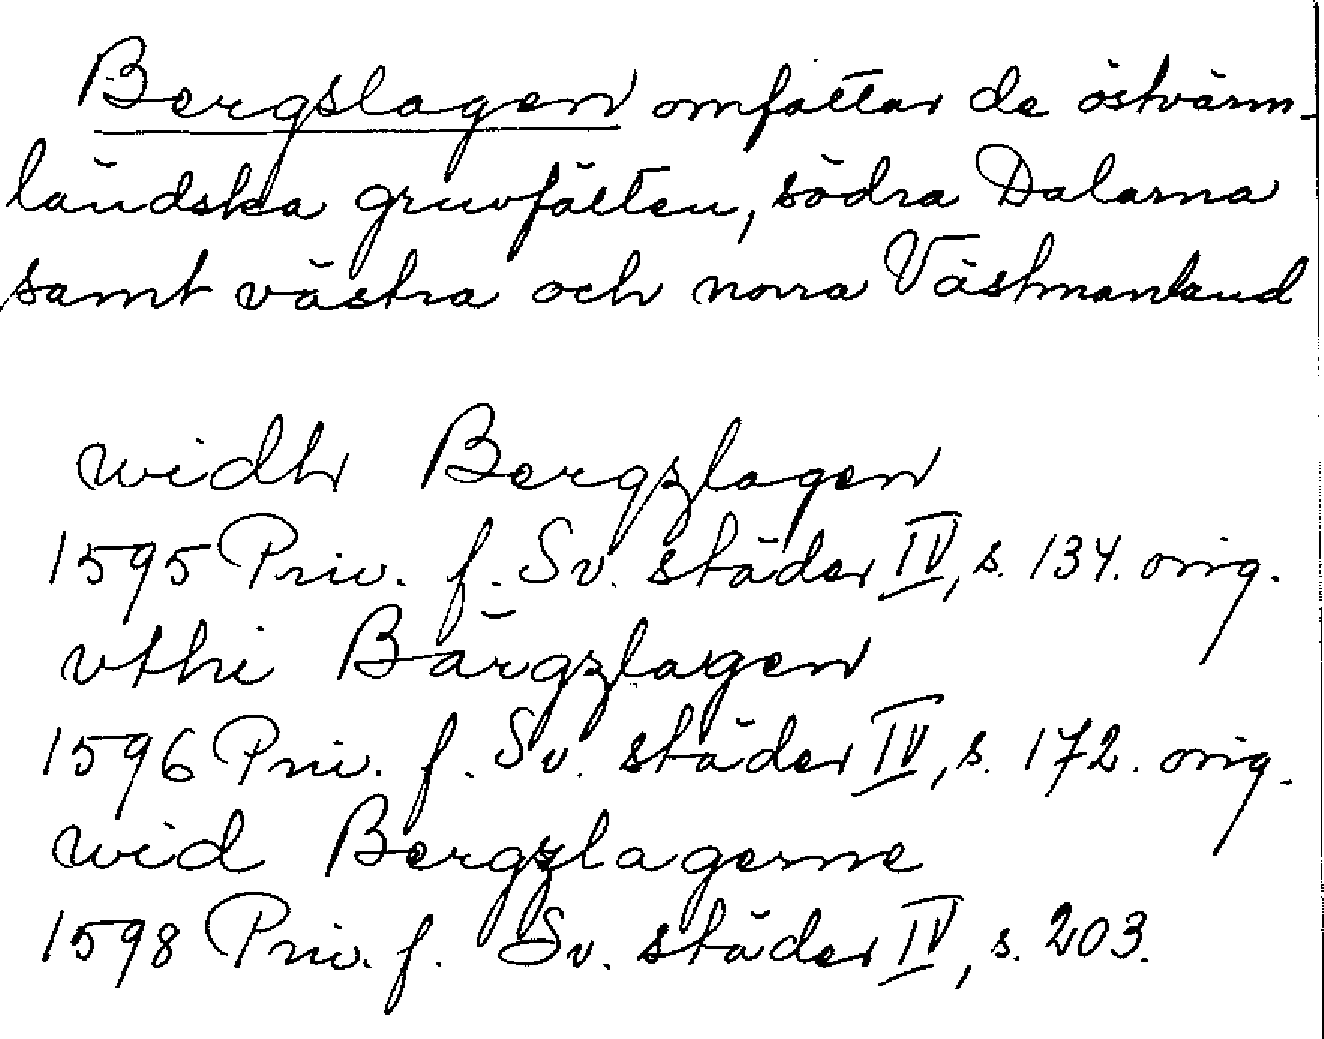 Bergslagen omfattar de östvärm-
ländska gruvfälten, södra Dalarna
samt västra och norra Västmanland
widh Bergzlagen
1595 Priv. f. Sv. städer IV, s. 134. orig.
vthi Bärgzlagen
1596 Priv. f. Sv. städer IV, s. 172. orig.
wid Bergzlagerne
1598 Priv. f. Sv. städer IV, s. 203.